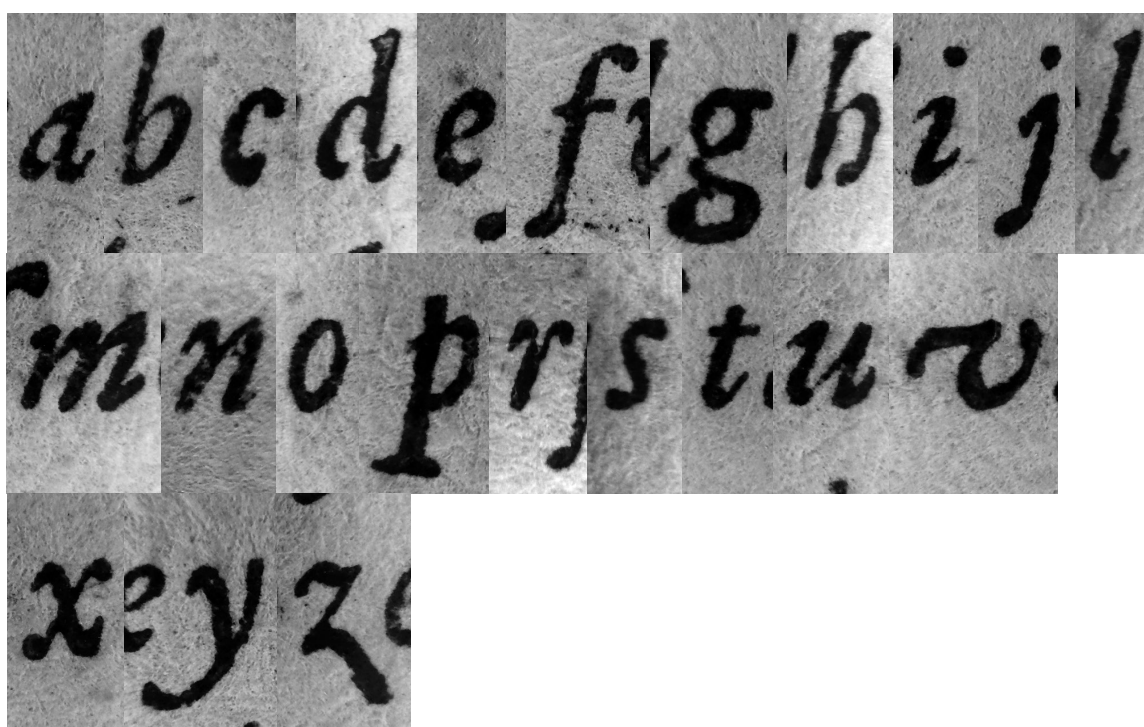 a b c d e f g h i j l
m n o p r s t u v
x y z